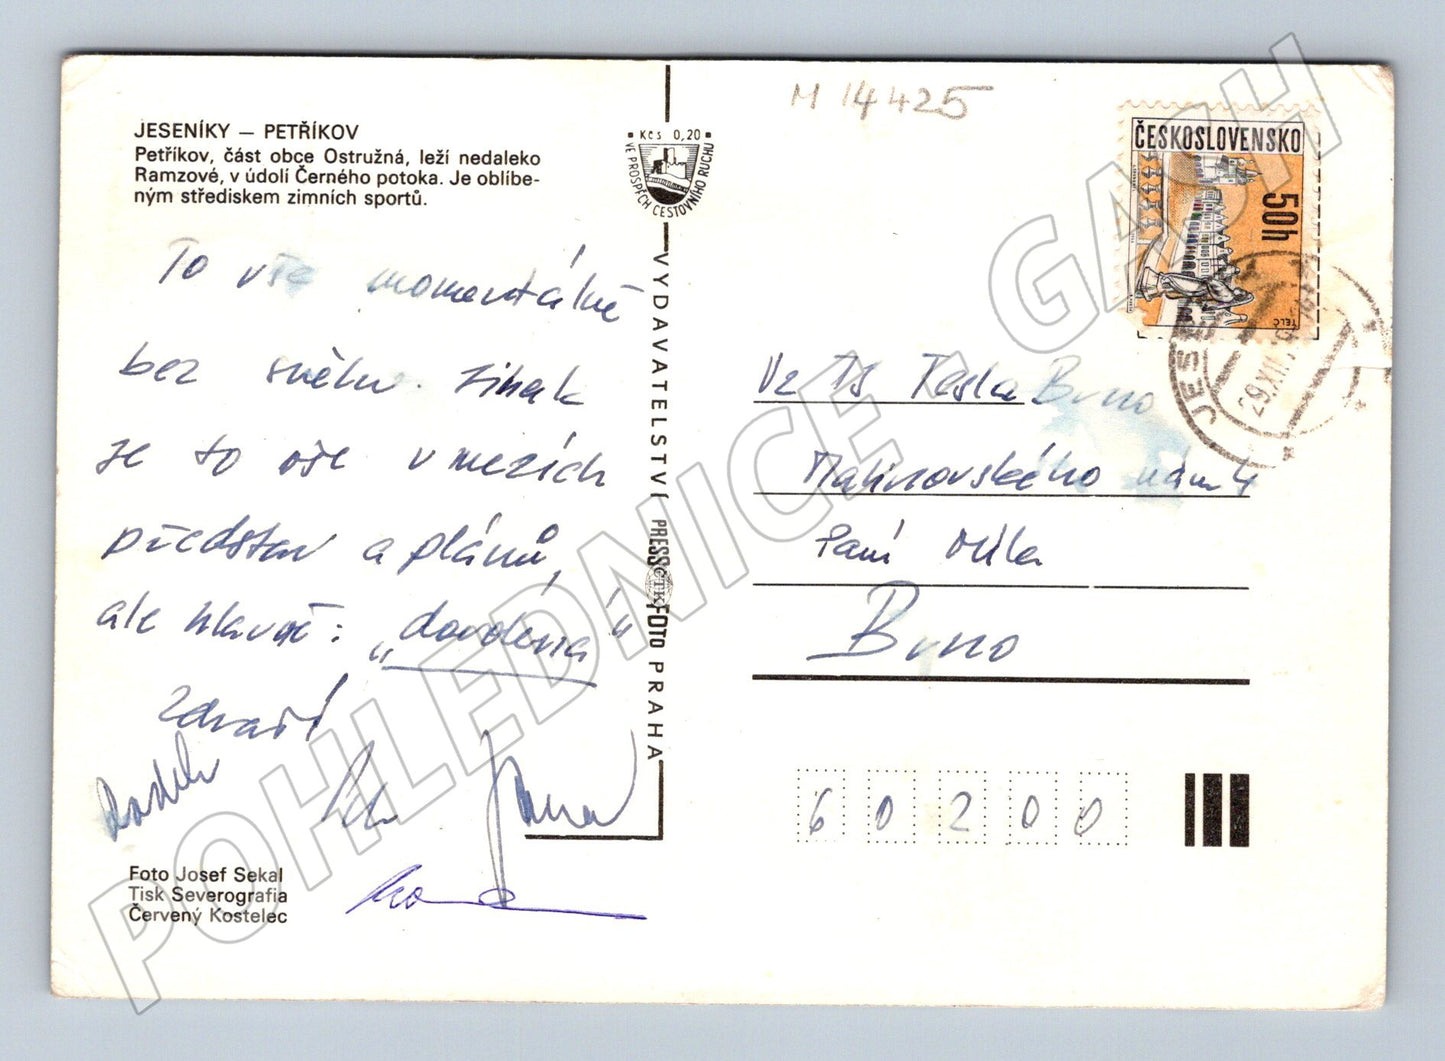 M 14425
JESENÍKY — PETŘÍKOV
Petříkov, část obce Ostružná, leží nedaleko
Ramzové, v údolí Černého potoka. Je oblíbe-
ným střediskem zimních sportů.
Kčs 0,20
VE PROSPĚCH CESTOVNÍHO RUCHU
ČESKOSLOVENSKO
50h
TELČ
JESE
To vše momentálně
bez sněhu. Jinak
je to vše v mezích
představ a plánů,
ale hlavně: „dovolená“
zdraví
Radek
Jana
VYDAVATELSTVÍ PRESSFOTO PRAHA
ČTK
Vz TS Tesla Brno
Malinovského nám 4
Paní Míla
Brno
60200
Foto Josef Sekal
Tisk Severografia
Červený Kostelec
POHLEDNICE - GACH